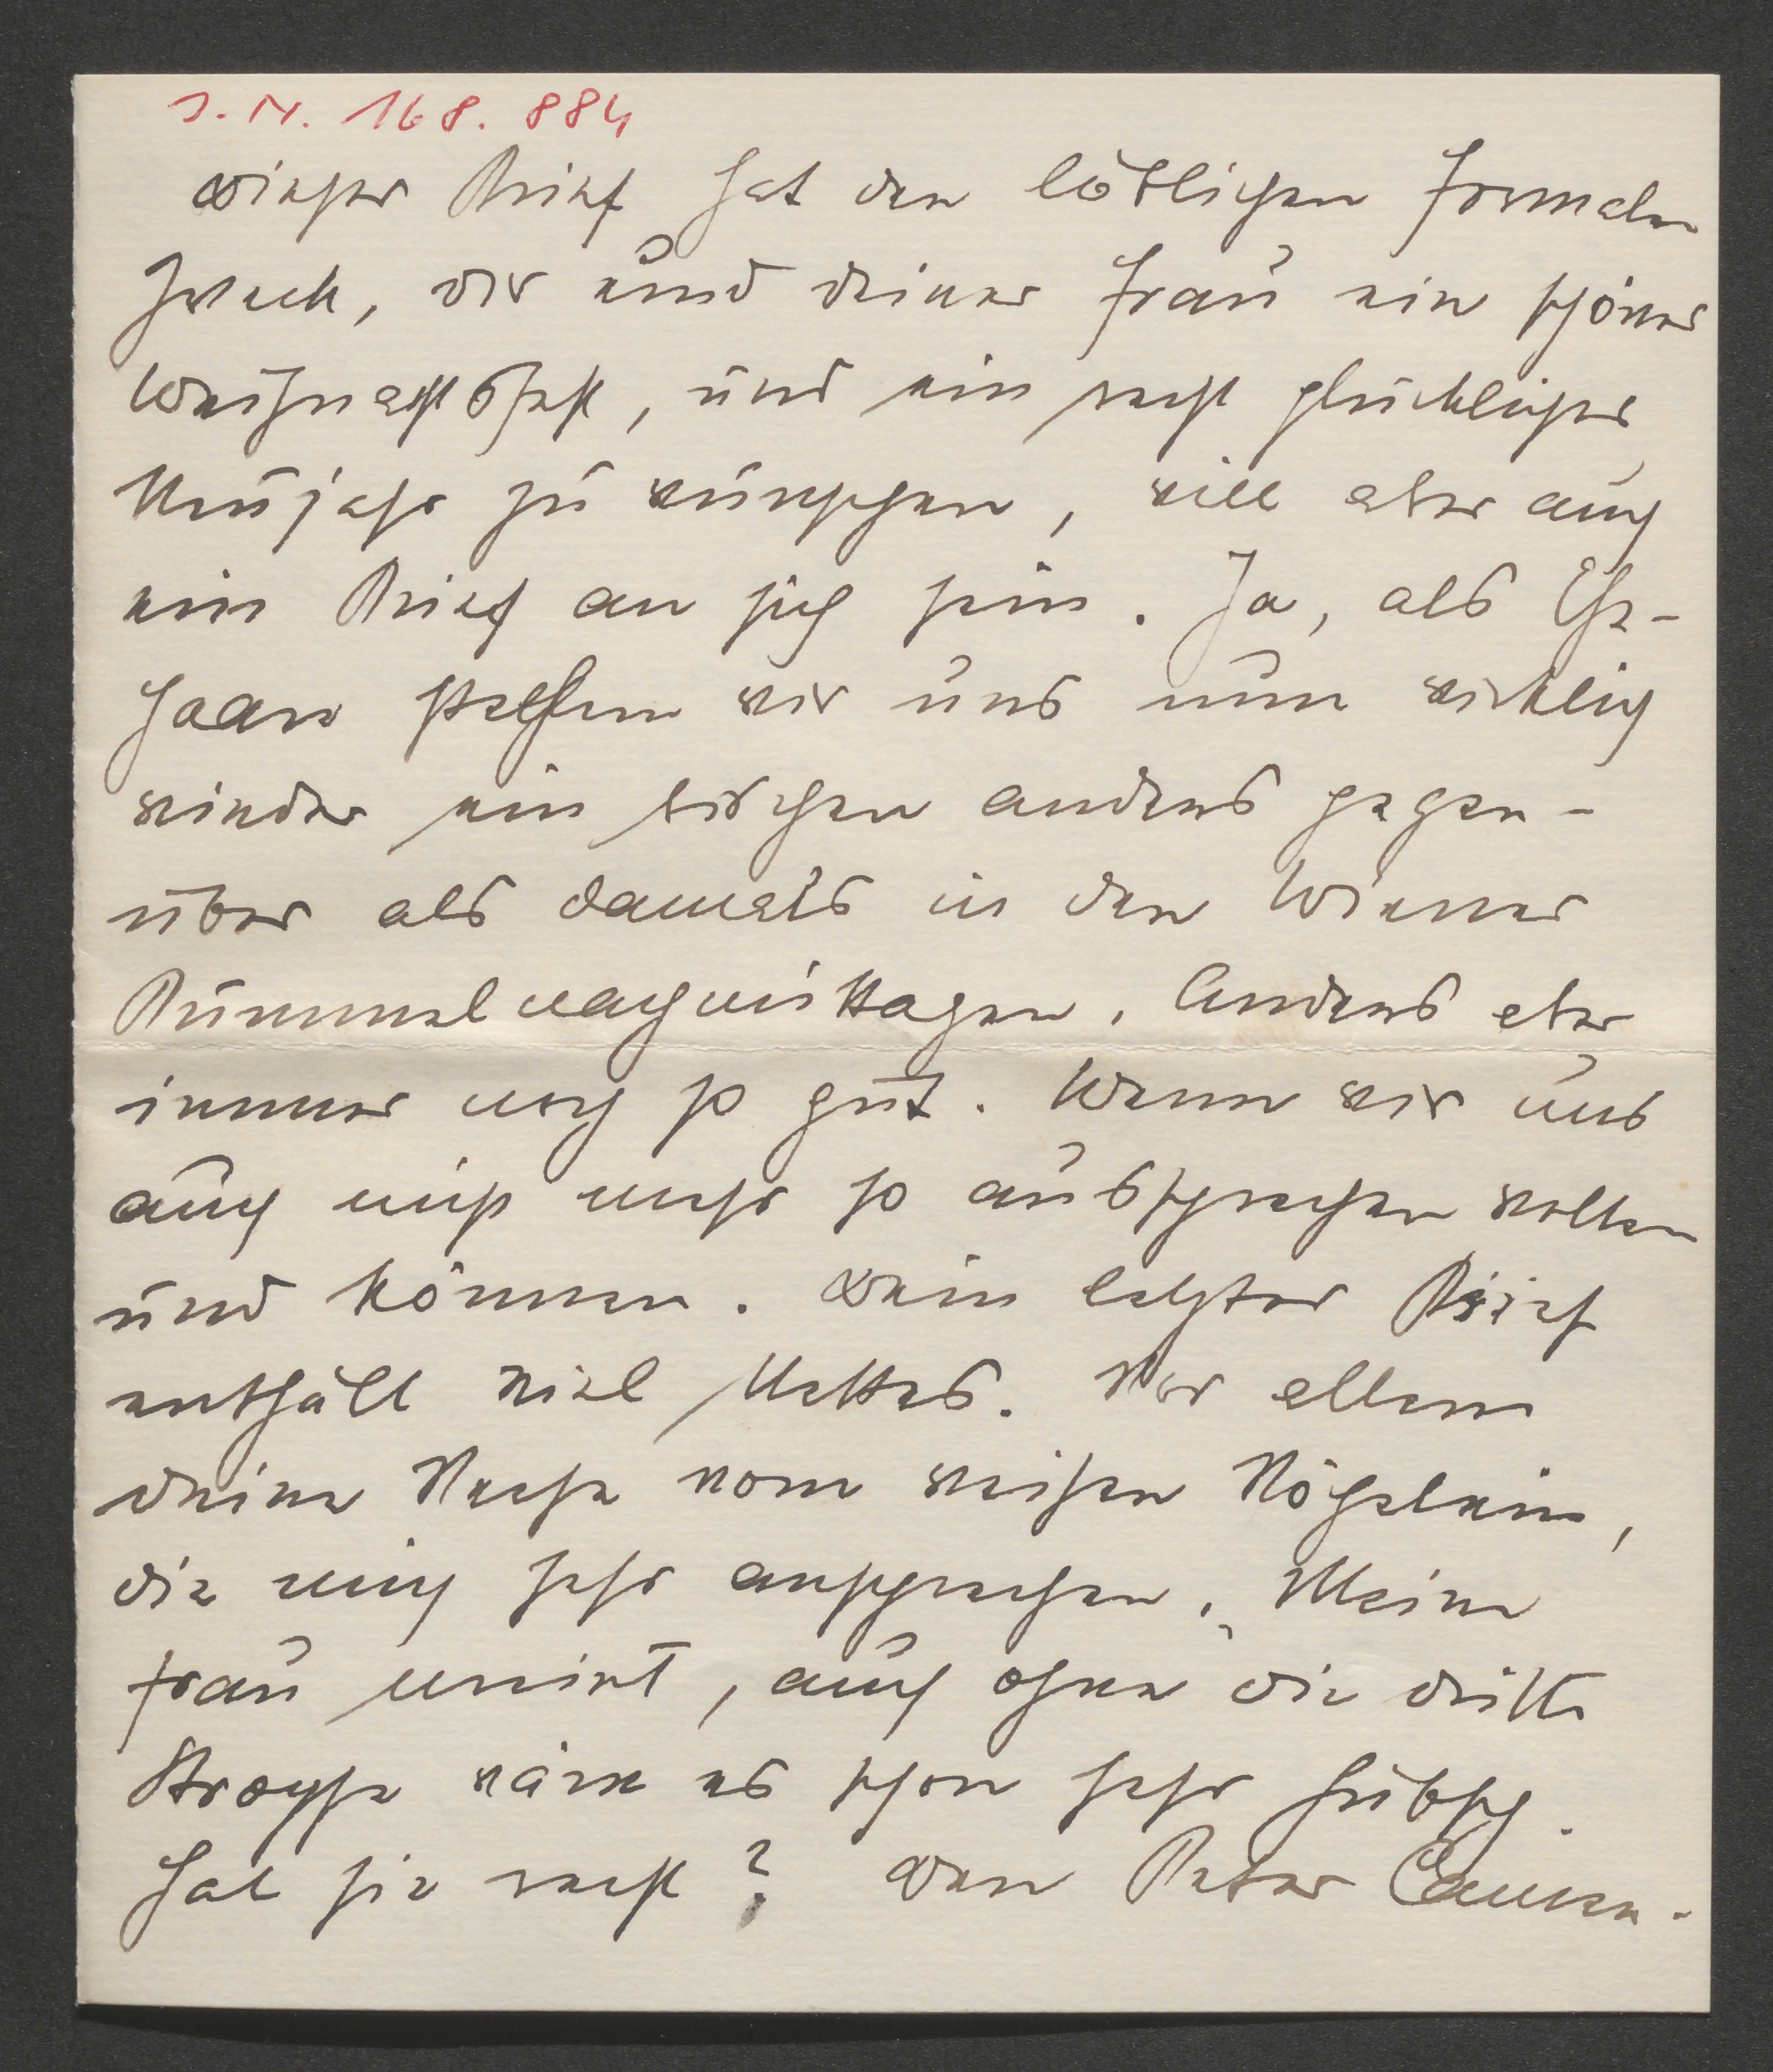 I. N. 168.884
Dieser Brief hat den löblichen formalen
Zweck, dir und deiner Frau ein schönes
Weihnachtsfest, und ein recht glückliches
Neujahr zu wünschen, will aber auch
ein Brief an sich sein. Ja, als Ehe-
paare stehen wir uns nun wirklich
wieder ein bischen anders gegen-
über als damals in den Wiener
Bummelnachmittagen. Anders aber
immer noch so gut. Wenn wir uns
auch nicht mehr so aussprechen wollen
und können. Dein letzter Brief
enthält viel Nettes. Vor allem
deine Verse vom weißen Vögelein,
die mich sehr ansprechen. Meine
Frau meint, auch ohne die dritte
Strophe wäre es schon sehr hübsch.
Hat sie recht? Den Peter Camen-